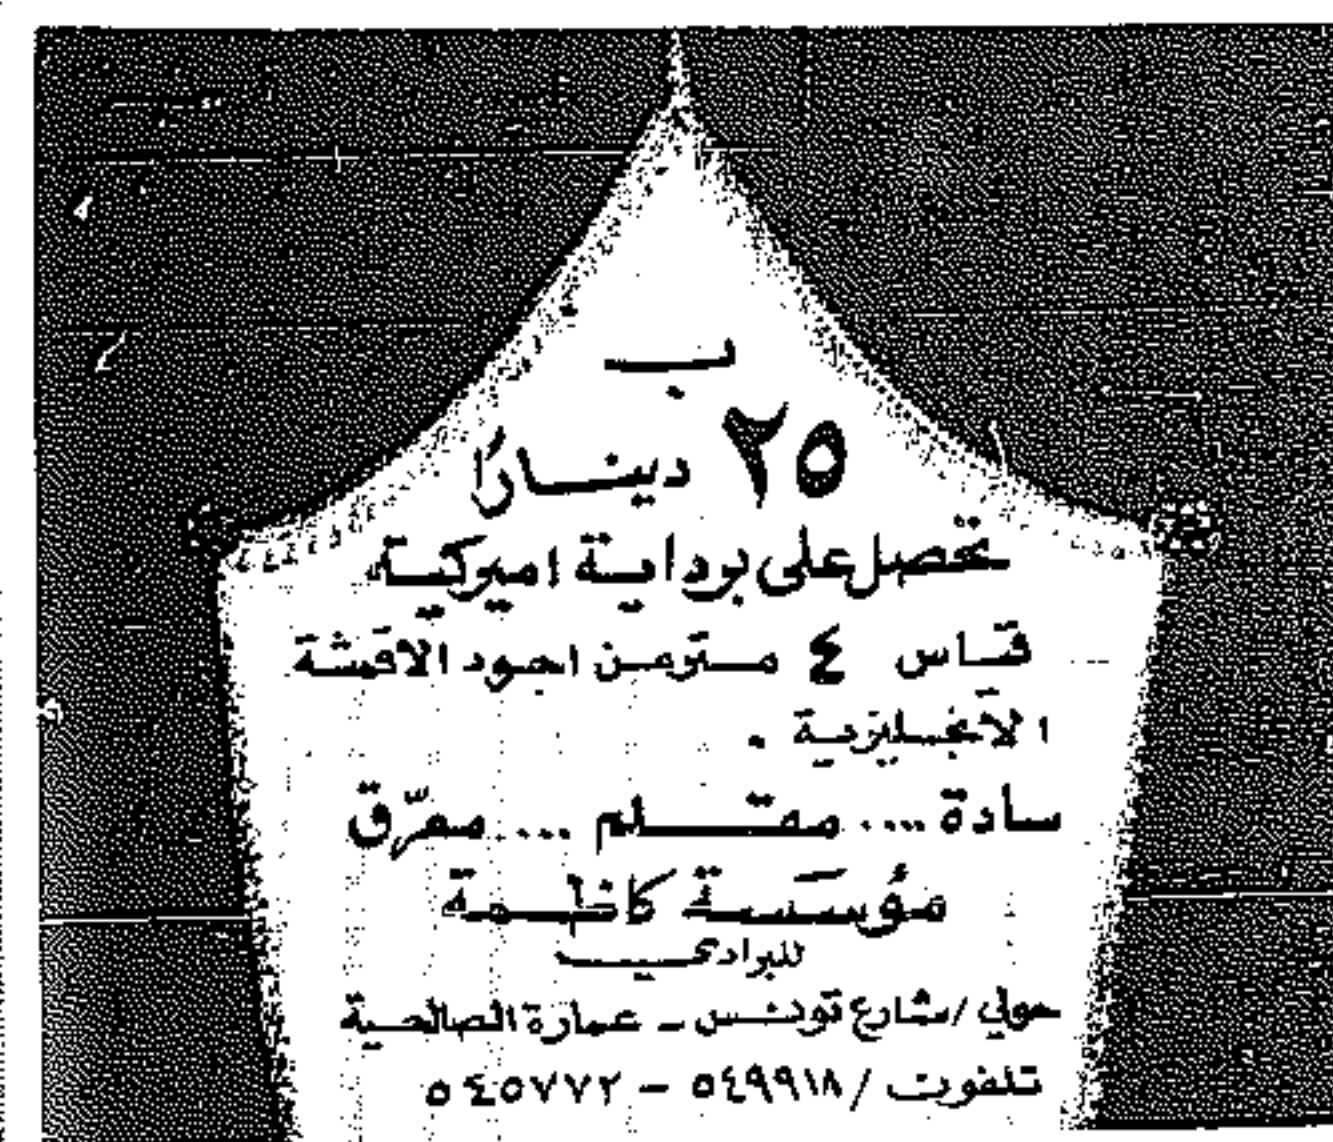 ب
٢٥ دينارًا
تحصل على برداية اميركية
قياس ٤ متر من اجود الاقمشة
الانجليزية .
سادة .... مقلم .... معرّق
مؤسسة كاظمة
للبرادي
حولي / شارع تونس - عمارة الصالحية
تلفون / ٥٤٩٩١٨ - ٥٤٥٧٧٢